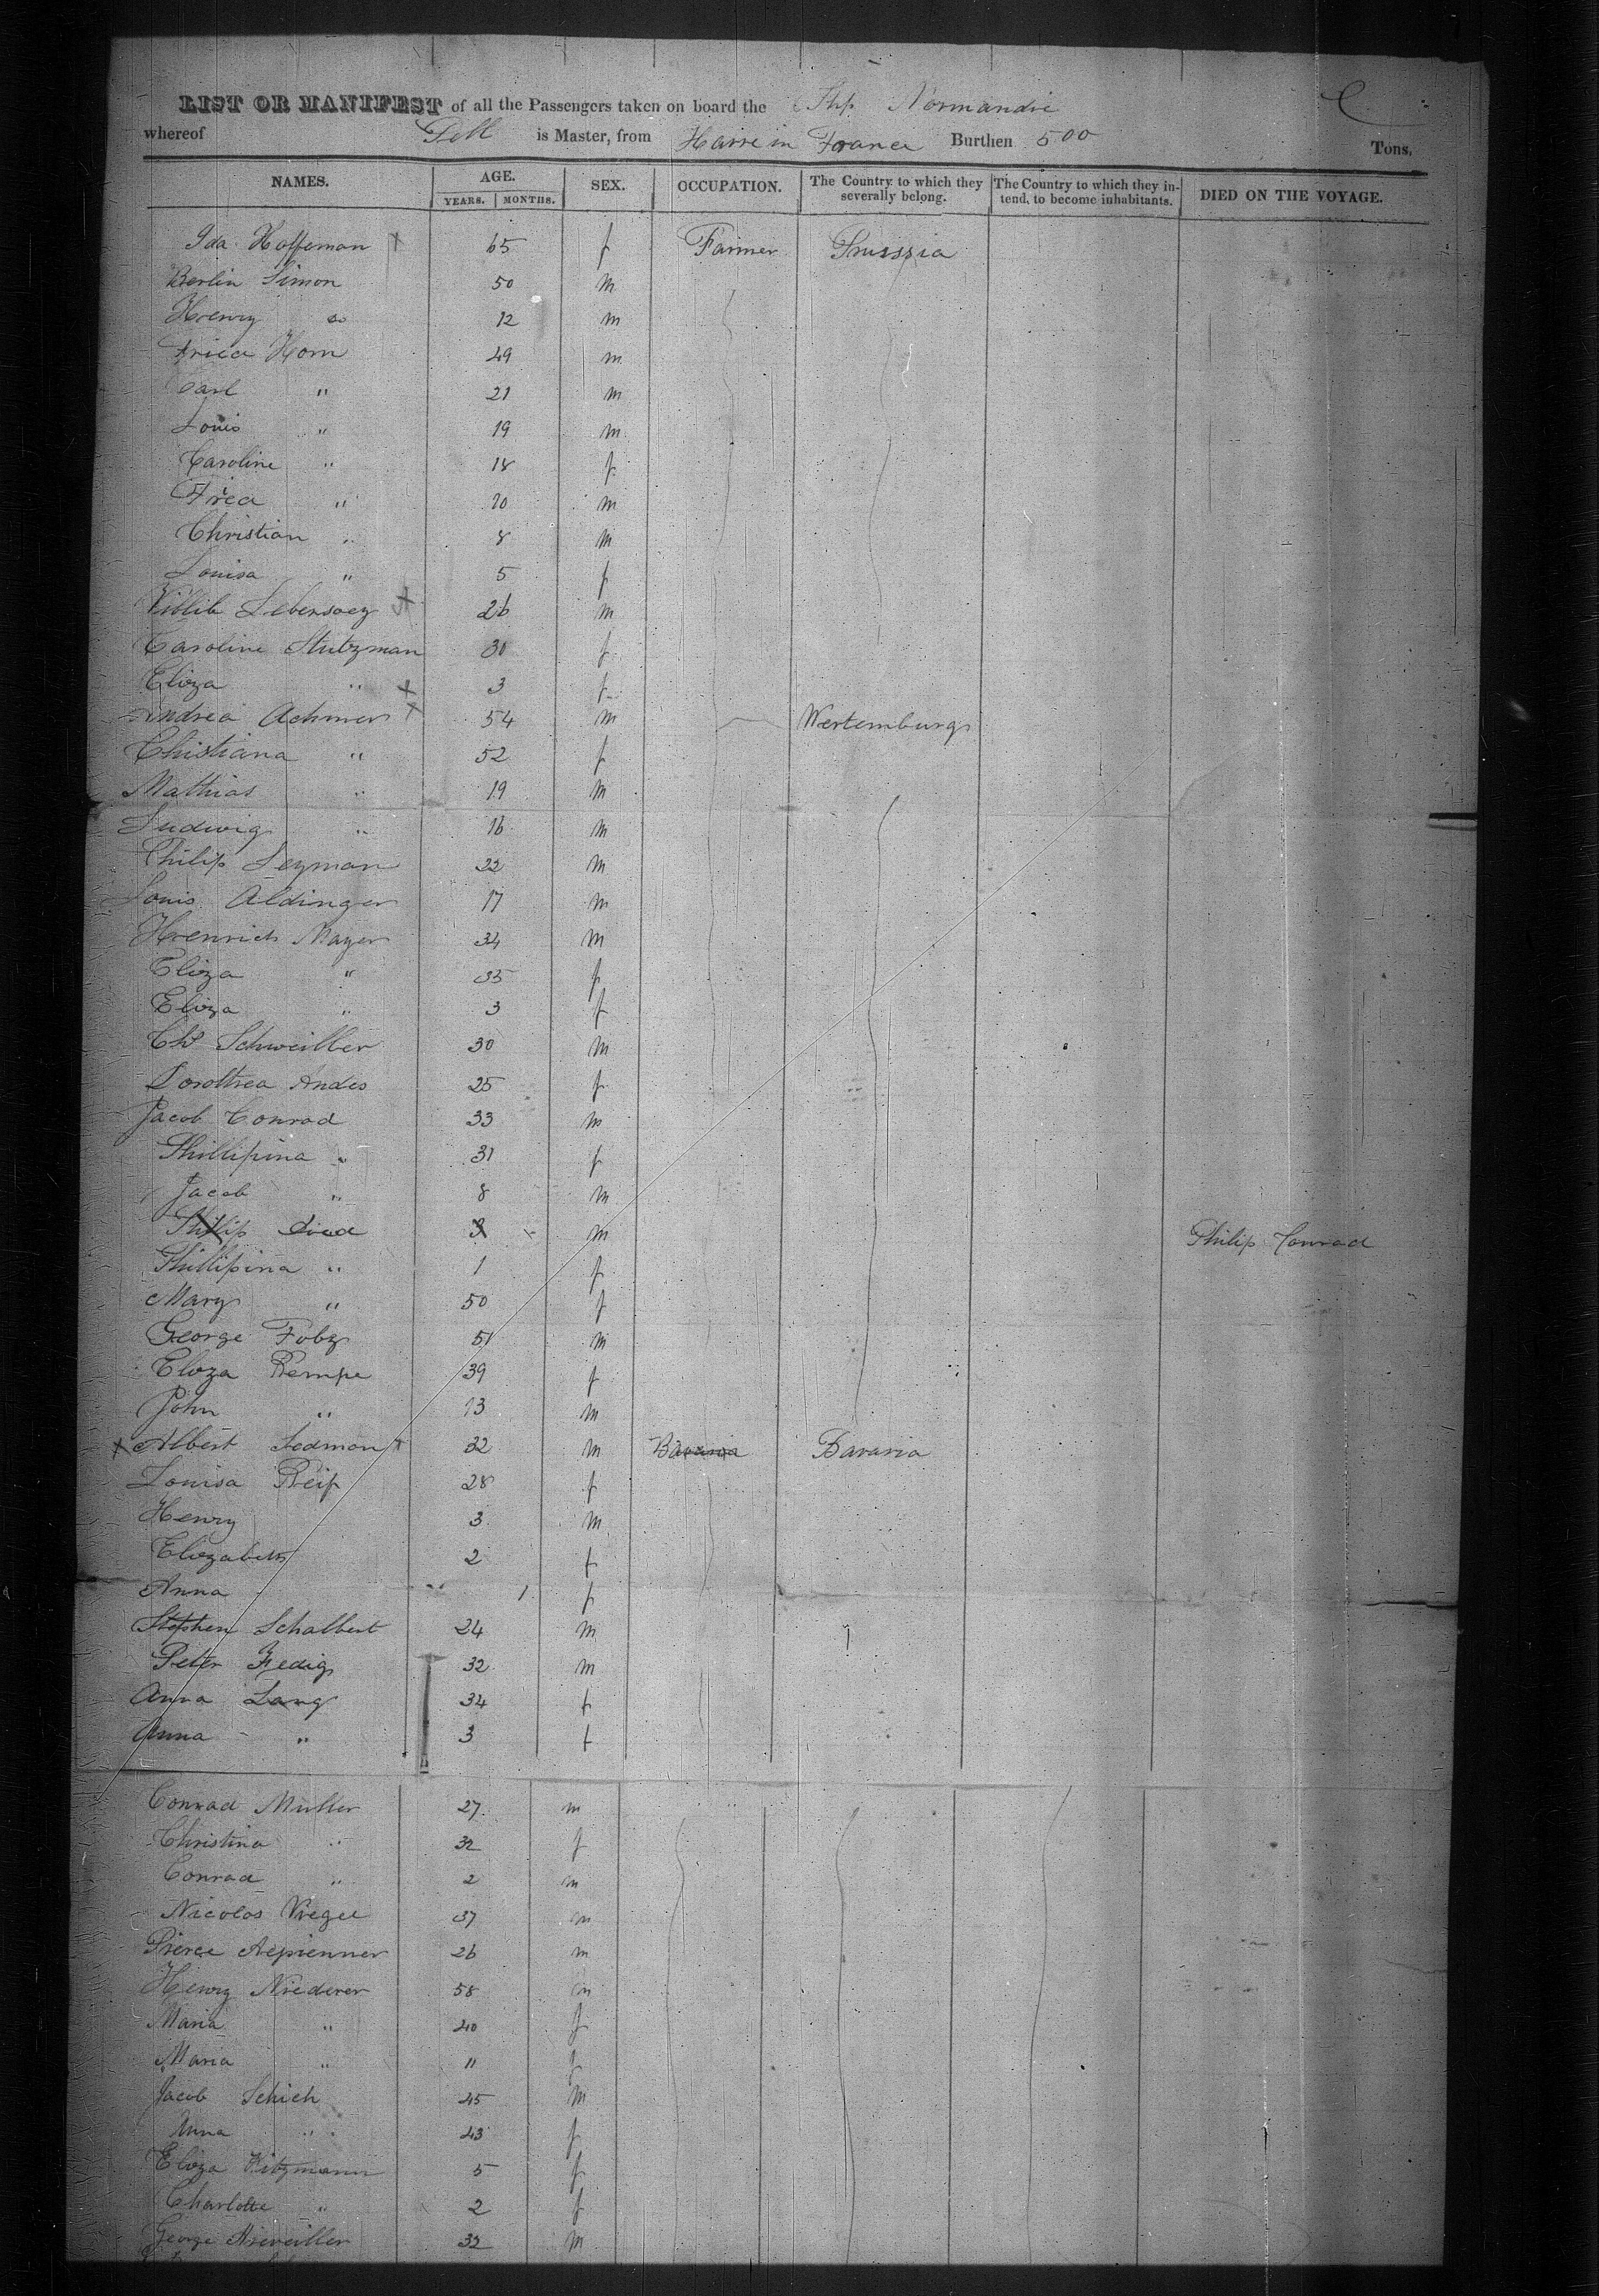 LIST OR MANIFEST of all the Passengers taken on board the Ship Normandie
whereof Pell is Master, from Havre in France Burthen 500 Tons,
NAMES. AGE. YEARS. MONTHS. SEX. OCCUPATION. The Country to which they severally belong. The Country to which they intend, to become inhabitants. DIED ON THE VOYAGE.
Ida Hoffeman 65 f Farmer Prussia
Berlin Simon 50 m
Henry do 12 m
Horn 49 m
Carl " 21 m
Louis " 19 m
Caroline " 18 f
" 10 m
Christian " 8 m
Louisa " 5 f
26 m
Caroline Stutzman 30 f
Eliza " 3 f
Andrea Achmer 54 m Wertemburg
Chistiana " 52 f
Mathias " 19 m
Ludwig " 16 m
Philip Leyman 22 m
Louis Aldinger 17 m
Henrich Mayer 34 m
Eliza " 35 f
Eliza " 3 f
Schweiller 30 m
Dorothea Andes 25 f
Jacob Conrad 33 m
Phillipina " 31 f
Jacob " 8 m
Phillip died 3 m Philip Conrad
Phillipina " 1 f
Mary " 50 f
George 51 m
Eliza Rempe 39 f
John " 13 m
Albert Sedman 32 m Bavaria Bavaria
Louisa Reip 28 f
Henry 3 m
Elizabeth 2 f
Anna 1 f
Stephen Schalbert 24 m
Peter Fedig 32 m
Anna Lang 34 f
Anna " 3 f
Conrad Muller 27 m
Christina " 32 f
Conrad " 2 m
Nicolas 37 m
Pierce 26 m
Henry Niederer 58 m
Maria " 40 f
Maria " 11 f
Jacob Schich 45 m
Anna " 43 f
Eliza Kitzmann 5 f
Charlotte " 2 f
George 32 m